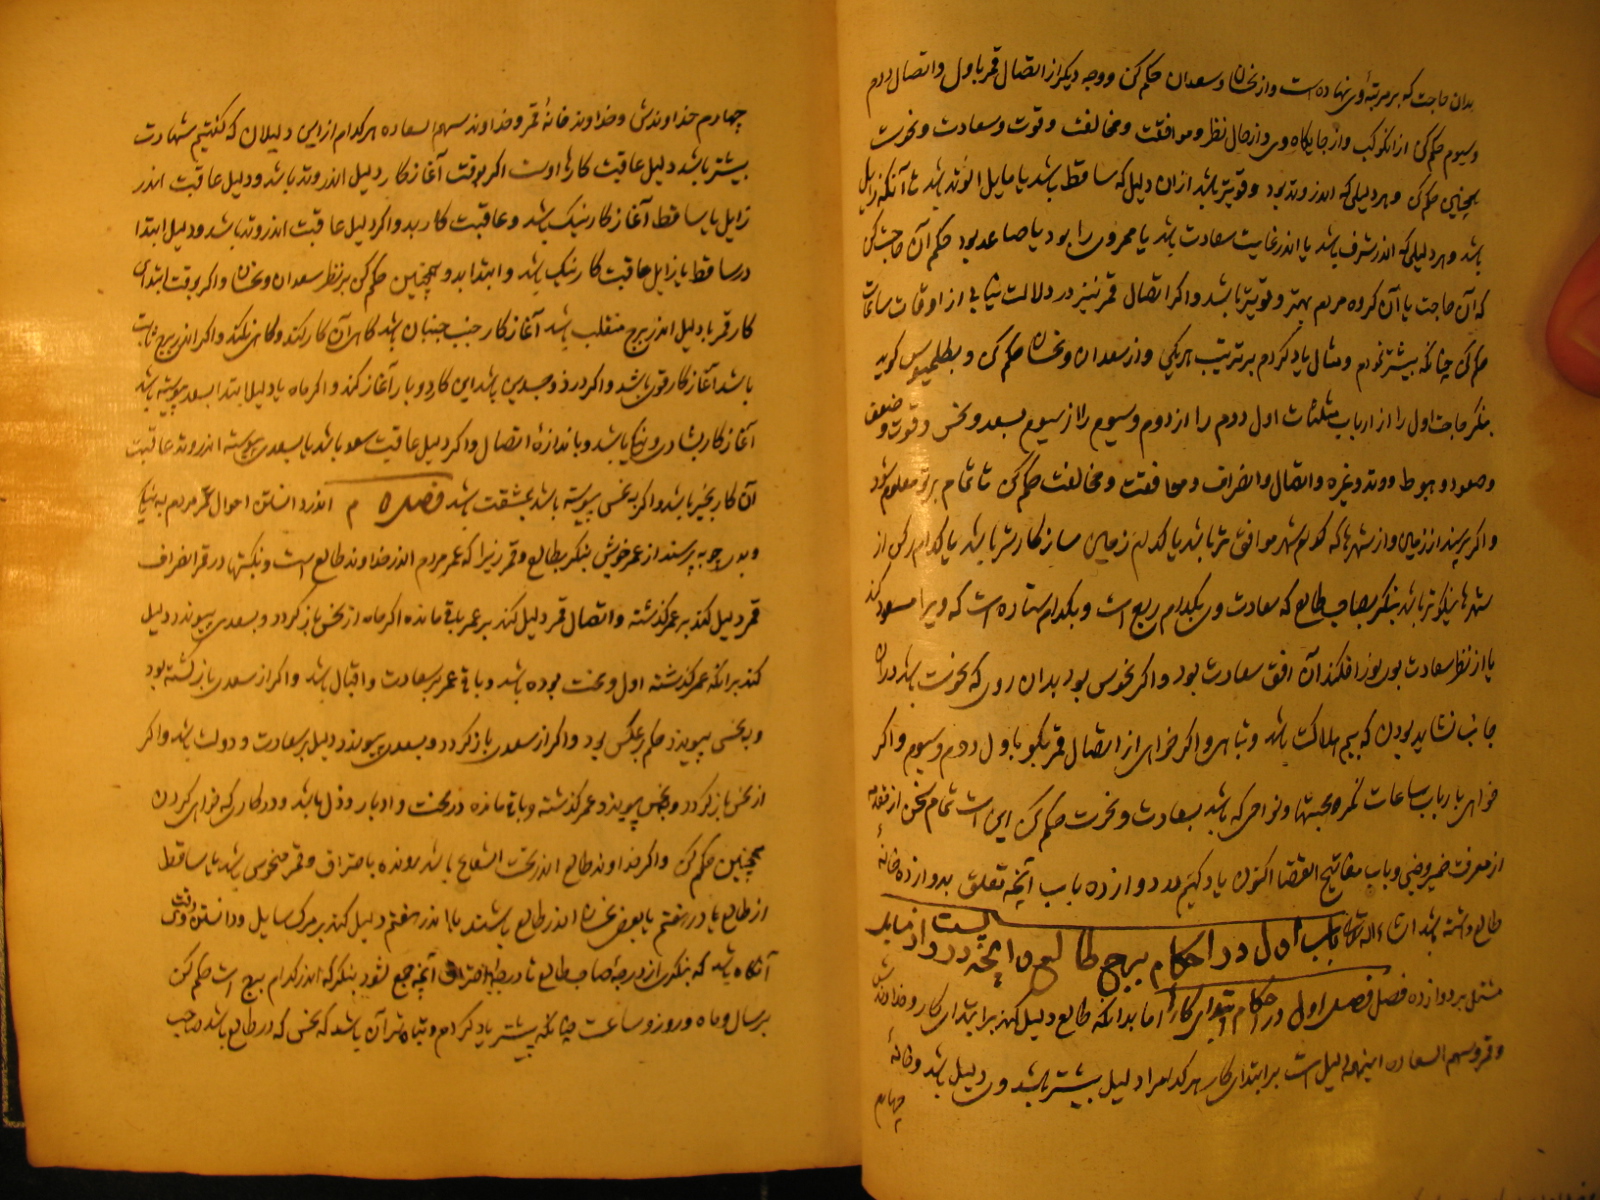 بدان حاجت که بر مرتبهٔ وی نهاده است و از نحسان و سعدان حکم کن و وجه دیگر از اتصال قمر باول و اتصال دوم
و سیوم حکم کن از آن کوکب و از جایگاه وی و از حال نظر و موافقت و مخالفت و قوت و سعادت و نحوست
همچنین حکم کن و هر دلیلی که اندر وتد بود و قویتر باشد از آن دلیل که ساقط باشد یا مایل الوتد باشد تا آنکه زایل
باشد و هر دلیلی که اندر شرف باشد یا اندر غایت سعادت باشد یا صاعد بود حکم آن حاجت کن
که آن حاجت یا آن کروه مردم بهتر و قویتر باشد و اکر اتصال قمر نیز در دلالت نیابی از اوقات ساعات
حکم کن چنانکه پیشتر و مثال یاد کردم بر ترتیب هر یکی و از سعدان و نحسان حکم کن و بطلمیوس کوید
بنکر حاجت اول را از ارباب مثلثات اول دوم را از دوم و سیوم را از سیوم بسعد و نحس و قوت و ضعف
و صعود و هبوط و وتد و غیره و اتصال و انصراف و موافقت و مخالفت حکم کن تا تمام بر تو معلوم شود
و اکر پرسند از زمین و از شهرها که کدام شهر موافق تر باشد یا کدام زمین سازکارتر باشد یا کدام رکن از
شهرها نیکوتر باشد بنکر بصاحب طالع که سعادت وی بکدام ربع است و بکدام ستاره است که ویرا مسعود کند
یا از نظر سعادت بوی نور افکند آن افق سعادت بود و اکر نحوس بود بدان روی که نحوست باشد در آن
جانب نشاید بودن که بیم هلاکت باشد و تباهی و اکر خواهی از اتصال قمر بکو باول دوم و سیوم و اکر
خواهی بارباب ساعات و نواحی که باشد بسعادت و نحوست حکم کن این است تمام سخن از مقدمه
از معرفت ضمیر و خبی و باب مفاتیح القضا اکنون یاد کنیم در دوازده باب آنچه تعلق بدوازده خانهٔ
طالع داشته باشد ان شاء الله تعالی باب اول در احکام برج طالع و آنچه در وی است و از
مشتمل بر دوازده فصل فصل اول در احکام ابتدای کارها اما بدانکه طالع دلیل کند بر ابتدای کار و خداوندش
و قمر و سهم السعاده اینهمه دلیل است بر ابتدای کار هر کدام را دلیل بیشتر باشد وی دلیل باشد و خانهٔ
چهارم
چهارم خداوندش و خداوند خانهٔ قمر و خداوند سهم السعاده هر کدام از این دلیلان که کفتیم شهادت
بیشتر باشد دلیل عاقبت کارها اوست اکر بوقت آغاز کار دلیل اندر وتد باشد و دلیل عاقبت اندر
زایل یا ساقط آغاز کار نیک باشد و عاقبت کار بد و اکر دلیل عاقبت اندر وتد باشد و دلیل ابتدا
در ساقط یا زایل عاقبت کار نیک باشد و ابتدا بد و همچنین حکم کن بر نظر سعدان و نحسان و اکر بوقت ابتدای
کار قمر یا دلیل اندر برج منقلب باشد آغاز کار جنب جنبان باشد کاهی آن کار کند و کاهی نکند و اکر اندر برج ثابت
باشد آغاز کار قوی باشد و اکر در ذو جسدین باشد این کار دو بار آغاز کند و اکر ماه یا دلیل ابتدا بسعد پیوسته باشد
آغاز کار بشادی و نیکی باشد و باندازهٔ اتصال و اکر دلیل عاقبت سعد باشد یا بسعدی پیوسته اندر وتد عاقبت
آن کار بخیر باشد و اکر به نحس پیوسته باشد بمشقت باشد فصل م اندر دانستن احوال عمر مردم به نیکی
و بدی چو به پرسند از عمر خویش بنکر بطالع و قمر زیرا که عمر مردم اندر خداوند طالع است و در قمر انصراف
قمر دلیل کند بر عمر کذشته و اتصال قمر دلیل کند بر عمر باقی مانده اکر ماه از نحس باز کردد و بسعدی پیوندد دلیل
کند بر آنکه عمر کذشته اول و نحت بوده باشد و باقی عمر بر سعادت و اقبال باشد و اکر از سعدی باز کشته بود
و به نحس پیوندد حکم بر عکس بود و اکر از سعدی باز کردد و بسعدی پیوندد دلیل بر سعادت و دولت باشد و اکر
از نحس باز کردد و بنحس پیوندد عمر کذشته و باقی مانده در نحت و ادبار و ذل باشد و در کاری که خواهی کردن
همچنین حکم کن و اکر خداوند طالع اندر تحت الشعاع باشد رونده باحتراق و قمر منحوس باشد یا ساقط
از طالع یا در هفتم یا بعضی نحسان اندر طالع باشند یا اندر هفتم دلیل کند بر مرک سایل و دانستن وقت
آنکاه باشد که بنکری از درجهٔ صاحب طالع تا درجهٔ احتراق آنچه جمع شود بنکر که اندر کدام برج است حکم کن
بر سال و ماه و روز و ساعت چنانکه پیشتر یاد کردم و تباه تر آن باشد که نحس که در طالع باشد صاحب